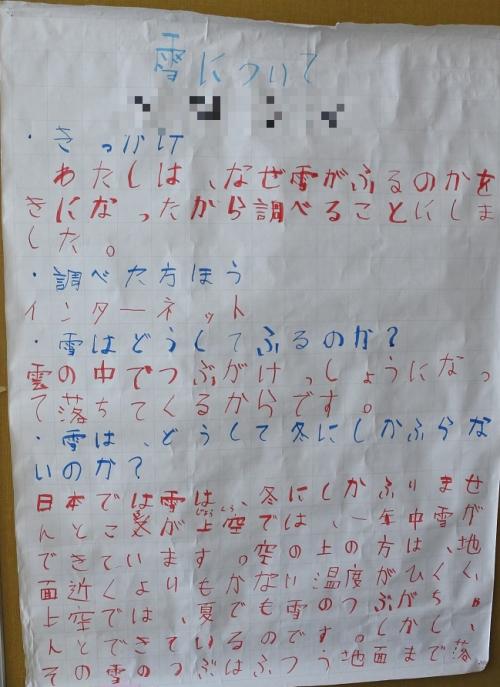 雪について
・きっかけ
わたしは、なぜ雪がふるのかを
きになったから調べることにしま
した。
・調べた方ほう
インターネット
・雪はどうしてふるのか?
雲の中でつぶがけっしょうになっ
て落ちてくるからです。
・雪は、どうして冬にしかふらな
いのか?
日本では雪は、冬にしかふりませ
んとこ が上空では、一年中雪が
できています。空の上の方は、地
面近くよりもかない温度がひくく、
上空では、夏でも雪のつぶがち
んとできているのです。しかし、
その雪のつぶはふつう地面まで落